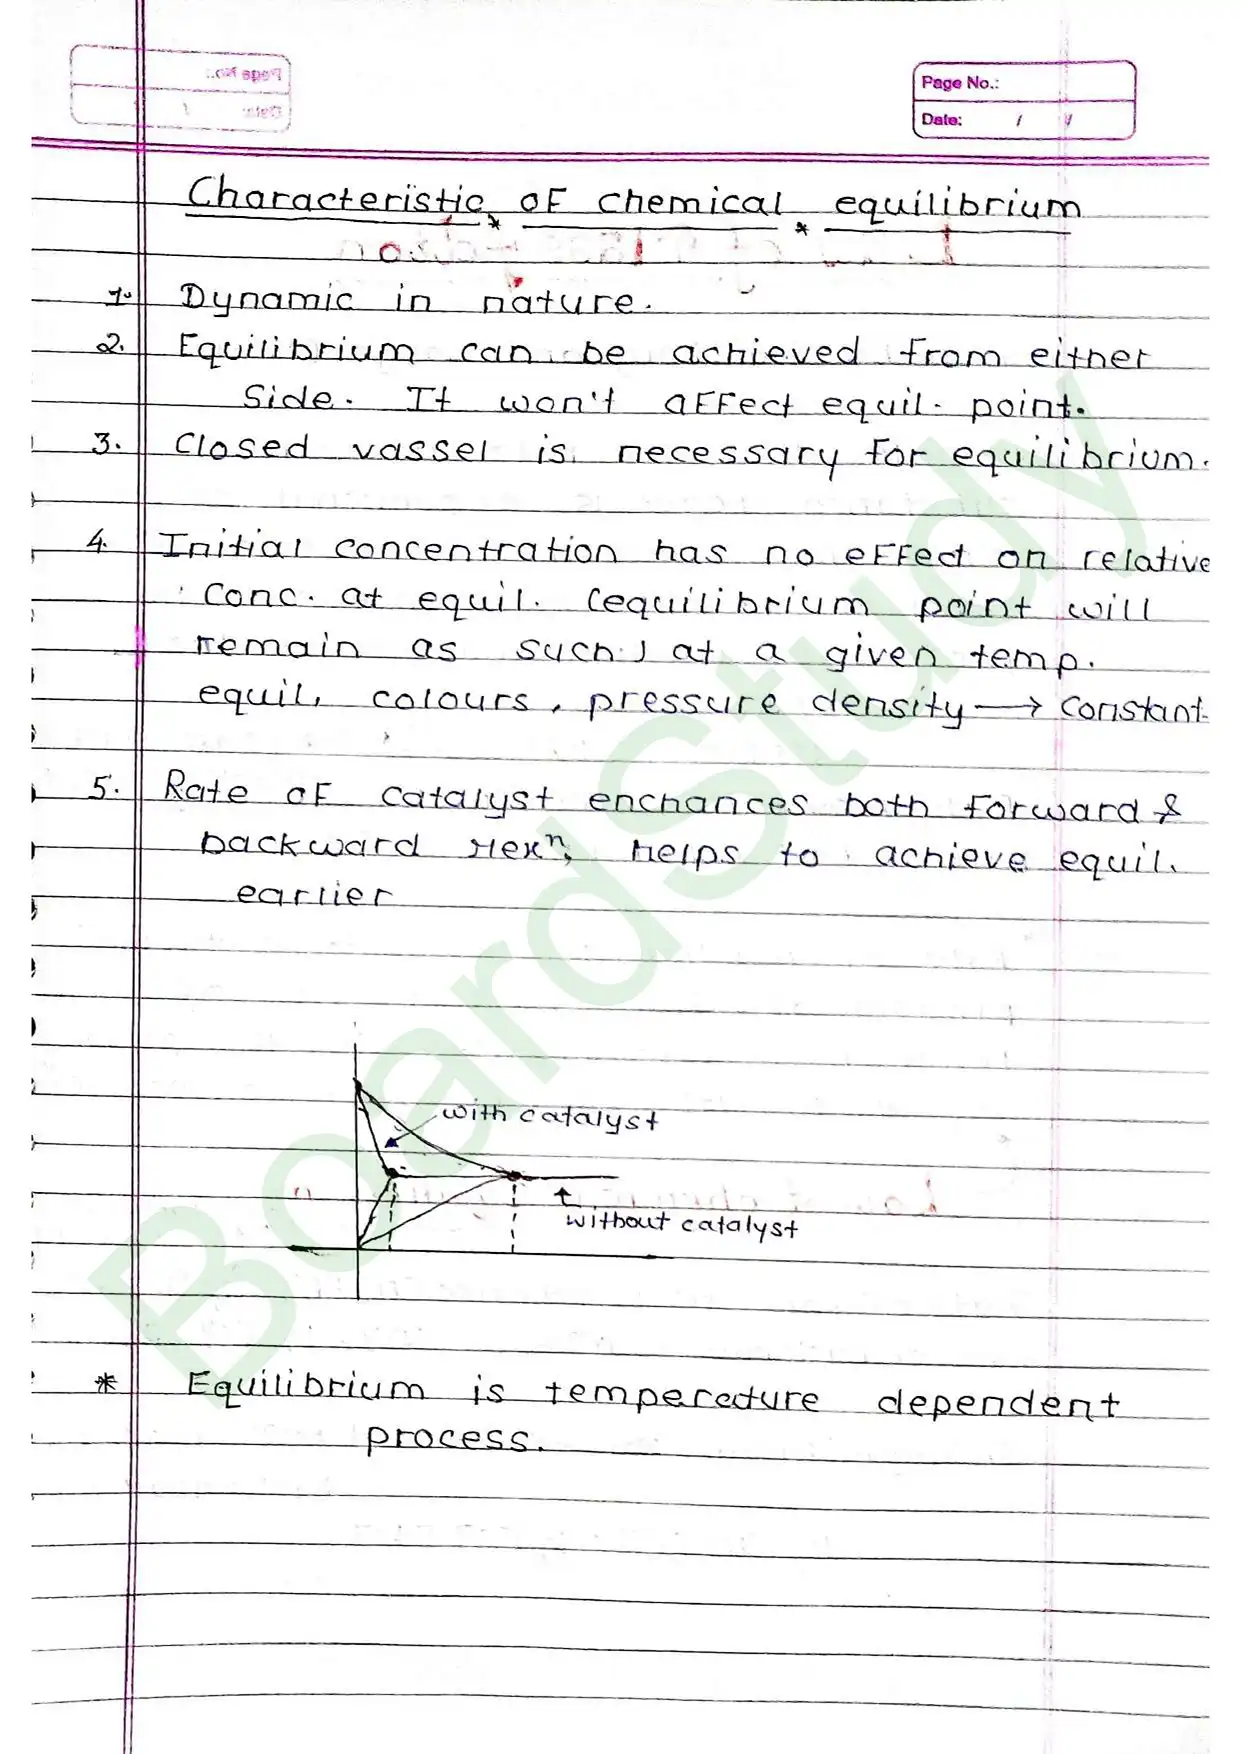 Page No.:
Date: / /
Characteristic of chemical equilibrium
1. Dynamic in nature.
2. Equilibrium can be achieved from either
Side. It won't affect equil. point.
3. Closed vassel is necessary for equilibrium.
4. Initial concentration has no effect on relative
Conc. at equil. (equilibrium point will
remain as such) at a given temp.
equil, colours, pressure density → constant.
5. Rate of catalyst enchances both forward &
backward rexⁿ, helps to achieve equil.
earlier
with catalyst
without catalyst
* Equilibrium is temperature dependent
process.
BoardStudy